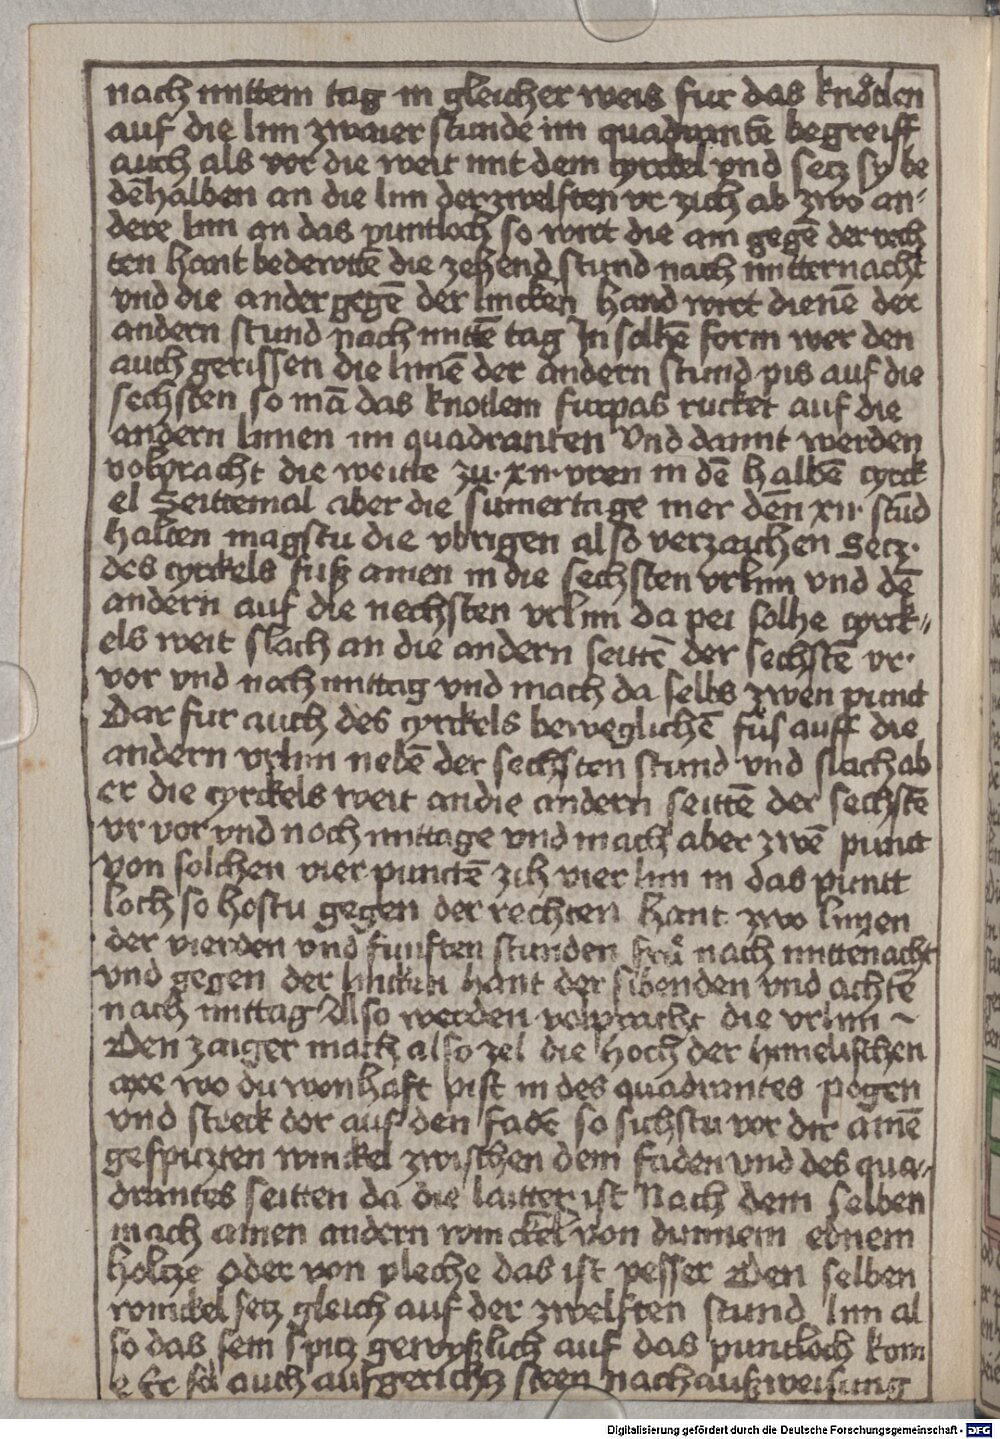 nach mittem tag in gleicher weis fur das knotlen
auf die linn zwaier stunde im quadrantē begreiff
auch als vor die weit mit dem cyrckel vnd setz sy be
dēhalben an die linn der zwelften vr zich ab zwo an-
dere linn an das puntloch so wirt die am gegē der rech
ten hant bedewttē die zehend stund nach mitternacht
vnd die ander gegē der lincken hand wirt dienē der
andern stund nach mittē tag In solhē form wer den
auch gerissen die linnē der andern stund pis auf die
sechsten so mā das knotlem furpas rucket auf die
andern linnen im quadranten Vnd damit werden
volbracht die weitte zu · xii · vren in dē halbē cyrck
el Seittemal aber die sumertage mer den xii · stūd
halten magstu die vbrigen also verzaichen Setz ·
des cyrckels fusz ainen in die sechsten vrlinn vnd dē
andern auf die nechsten vrlinn da pei solhe cyrck-
els weit slach an die andern seittē der sechstē vr ·
vor vnd noch mittag vnd mach da selbs zwen punct
Dar fur auch des cyrckels beweglichē fůs auff die
andern vrlinn nebē der sechsten stund vnd slach ab
er die cyrckels weit an die andern seittē der sechstē
vr vor vnd noch mittage vnd mach aber zwē punct
von solchen vier punctē zih vier linn in das puntt
loch so hostu gegen der rechten hant zwo linnen
der vierden vnd funften stunden frů nach mittenacht
vnd gegen der lincken hant der sibenden vnd achtē
nach mittag Also werden volpracht die vrlinn ~
Den zaiger mach also zel die hoch der himelischen
axe wo du wonhaft pist in des quadrantes pogen
vnd streck dor auf den fadē so sichstu vor dir ainē
gespitzten winckel zwischen dem faden vnd des qua-
drantes seitten da die laitter ist Nach dem selben
mach ainen andern winckel von dunnem ebnem
holtze oder von pleche das ist pesser Den selben
winckel setz gleich auf der zwelften stund linn al
so das sein spitz gewyszlich auf das puntloch kom
e Er sol auch aufgerichtz steen nach auszweisung
Digitalisierung gefördert durch die Deutsche Forschungsgemeinschaft - DFG